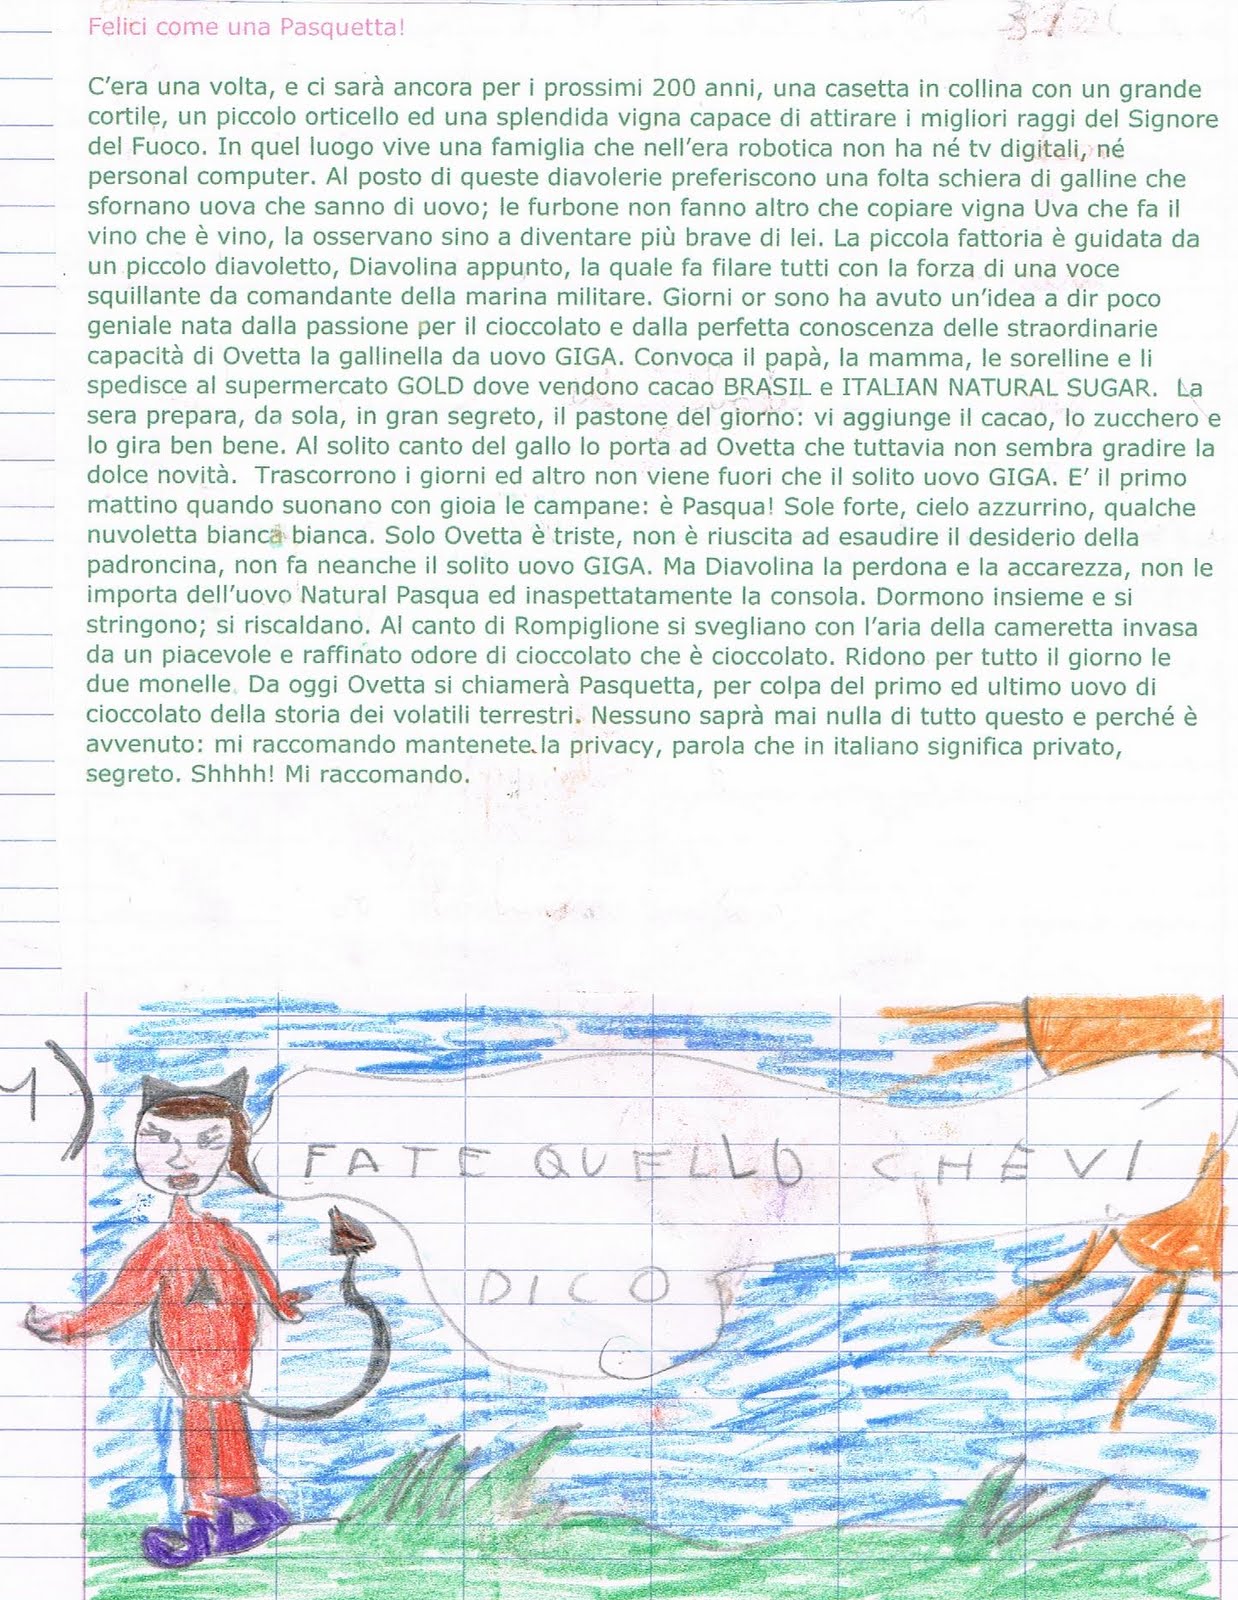 Felici come una Pasquetta!
C’era una volta, e ci sarà ancora per i prossimi 200 anni, una casetta in collina con un grande
cortile, un piccolo orticello ed una splendida vigna capace di attirare i migliori raggi del Signore
del Fuoco. In quel luogo vive una famiglia che nell’era robotica non ha né tv digitali, né
personal computer. Al posto di queste diavolerie preferiscono una folta schiera di galline che
sfornano uova che sanno di uovo; le furbone non fanno altro che copiare vigna Uva che fa il
vino che è vino, la osservano sino a diventare più brave di lei. La piccola fattoria è guidata da
un piccolo diavoletto, Diavolina appunto, la quale fa filare tutti con la forza di una voce
squillante da comandante della marina militare. Giorni or sono ha avuto un’idea a dir poco
geniale nata dalla passione per il cioccolato e dalla perfetta conoscenza delle straordinarie
capacità di Ovetta la gallinella da uovo GIGA. Convoca il papà, la mamma, le sorelline e li
spedisce al supermercato GOLD dove vendono cacao BRASIL e ITALIAN NATURAL SUGAR.  La
sera prepara, da sola, in gran segreto, il pastone del giorno: vi aggiunge il cacao, lo zucchero e
lo gira ben bene. Al solito canto del gallo lo porta ad Ovetta che tuttavia non sembra gradire la
dolce novità.  Trascorrono i giorni ed altro non viene fuori che il solito uovo GIGA. E’ il primo
mattino quando suonano con gioia le campane: è Pasqua! Sole forte, cielo azzurrino, qualche
nuvoletta bianca bianca. Solo Ovetta è triste, non è riuscita ad esaudire il desiderio della
padroncina, non fa neanche il solito uovo GIGA. Ma Diavolina la perdona e la accarezza, non le
importa dell’uovo Natural Pasqua ed inaspettatamente la consola. Dormono insieme e si
stringono; si riscaldano. Al canto di Rompiglione si svegliano con l’aria della cameretta invasa
da un piacevole e raffinato odore di cioccolato che è cioccolato. Ridono per tutto il giorno le
due monelle. Da oggi Ovetta si chiamerà Pasquetta, per colpa del primo ed ultimo uovo di
cioccolato della storia dei volatili terrestri. Nessuno saprà mai nulla di tutto questo e perché è
avvenuto: mi raccomando mantenete la privacy, parola che in italiano significa privato,
segreto. Shhhh! Mi raccomando.
FATE QUELLO CHE VI
DICO